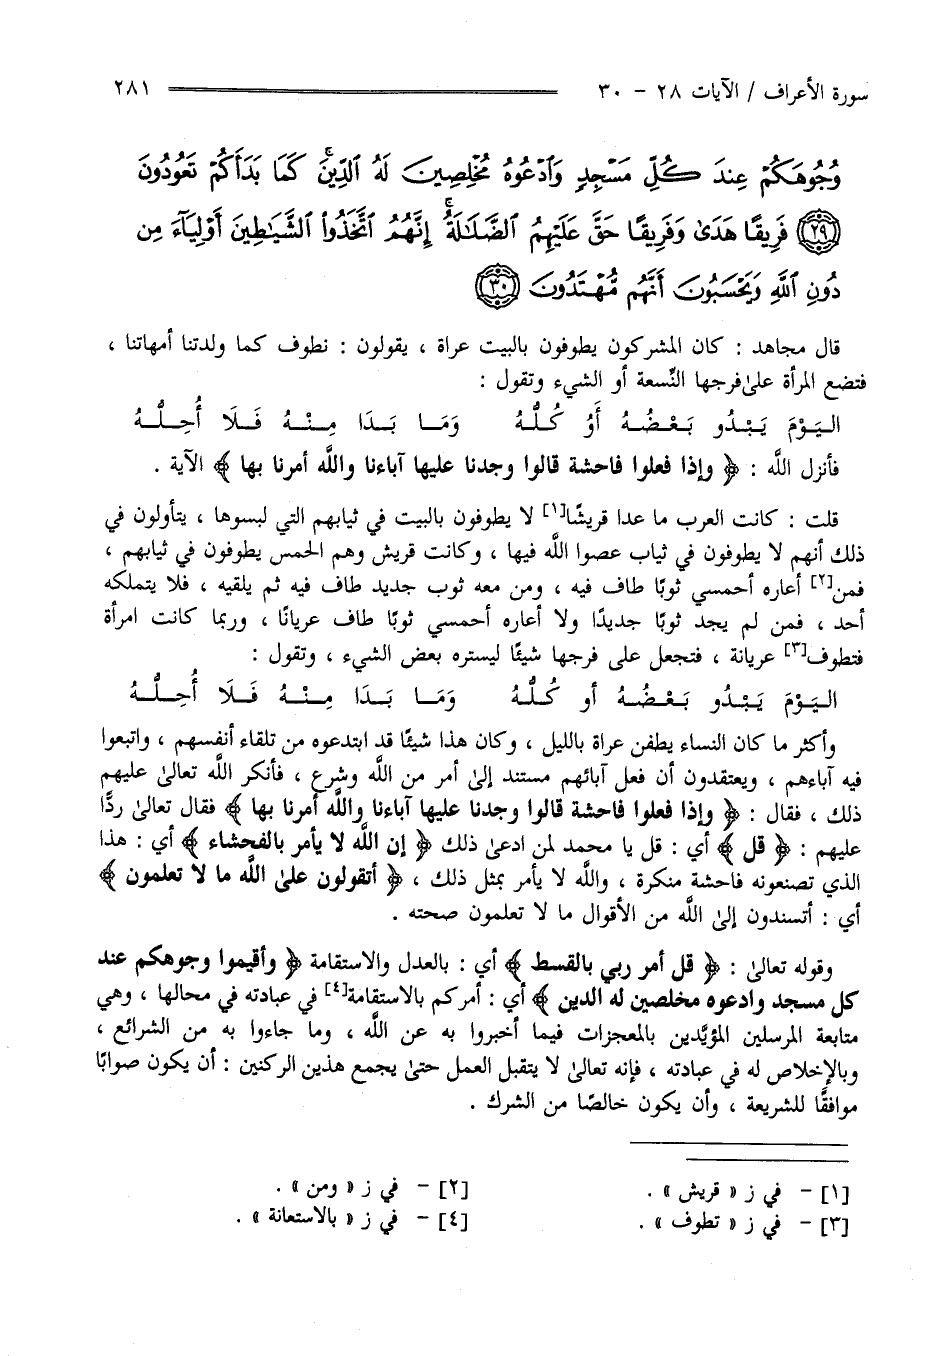 سورة الأعراف / الآيات ٢٨ - ٣٠ ٢٨١
وُجُوهَكُمْ عِندَ كُلِّ مَسْجِدٍ وَٱدْعُوهُ مُخْلِصِينَ لَهُ ٱلدِّينَ ۚ كَمَا بَدَأَكُمْ تَعُودُونَ
﴿٢٩﴾ فَرِيقًا هَدَىٰ وَفَرِيقًا حَقَّ عَلَيْهِمُ ٱلضَّلَٰلَةُ ۚ إِنَّهُمُ ٱتَّخَذُوا۟ ٱلشَّيَٰطِينَ أَوْلِيَآءَ مِن
دُونِ ٱللَّهِ وَيَحْسَبُونَ أَنَّهُم مُّهْتَدُونَ ﴿٣٠﴾
قال مجاهد : كان المشركون يطوفون بالبيت عراة ، يقولون : نطوف كما ولدتنا أمهاتنا ،
فتضع المرأة على فرجها النِّسعة أو الشيء وتقول :
اليَوْمَ يَبْدُو بَعْضُهُ أَوُ كُلُّهُ وَمَا بَدَا مِنْهُ فَلَا أُحِلُّهُ
فأنزل اللَّه : ﴿ وإذا فعلوا فاحشة قالوا وجدنا عليها آباءنا واللَّه أمرنا بها ﴾ الآية .
قلت : كانت العرب ما عدا قريشًا[١] لا يطوفون بالبيت في ثيابهم التي لبسوها ، يتأولون في
ذلك أنهم لا يطوفون في ثياب عصوا اللَّه فيها ، وكانت قريش وهم الحمس يطوفون في ثيابهم ،
فمن[٢] أعاره أحمسي ثوبًا طاف فيه ، ومن معه ثوب جديد طاف فيه ثم يلقيه ، فلا يتملكه
أحد ، فمن لم يجد ثوبًا جديدًا ولا أعاره أحمسي ثوبًا طاف عريانًا ، وربما كانت امرأة
فتطوف[٣] عريانة ، فتجعل على فرجها شيئًا ليستره بعض الشيء ، وتقول :
اليَوْمَ يَبْدُو بَعْضُهُ أو كُلُّهُ وَمَا بَدَا مِنْهُ فَلَا أُحِلُّهُ
وأكثر ما كان النساء يطفن عراة بالليل ، وكان هذا شيئًا قد ابتدعوه من تلقاء أنفسهم ، واتبعوا
فيه آباءهم ، ويعتقدون أن فعل آبائهم مستند إلىٰ أمر من اللَّه وشرع ، فأنكر اللَّه تعالىٰ عليهم
ذلك ، فقال : ﴿ وإذا فعلوا فاحشة قالوا وجدنا عليها آباءنا واللَّه أمرنا بها ﴾ فقال تعالىٰ ردًّا
عليهم : ﴿ قل ﴾ أي : قل يا محمد لمن ادعىٰ ذلك ﴿ إن اللَّه لا يأمر بالفحشاء ﴾ أي : هذا
الذي تصنعونه فاحشة منكرة ، واللَّه لا يأمر بمثل ذلك ، ﴿ أتقولون علىٰ اللَّه ما لا تعلمون ﴾
أي : أتسندون إلىٰ اللَّه من الأقوال ما لا تعلمون صحته .
وقوله تعالىٰ : ﴿ قل أمر ربي بالقسط ﴾ أي : بالعدل والاستقامة ﴿ وأقيموا وجوهكم عند
كل مسجد وادعوه مخلصين له الدين ﴾ أي : أمركم بالاستقامة[٤] في عبادته في محالها ، وهي
متابعة المرسلين المؤيَّدين بالمعجزات فيما أخبروا به عن اللَّه ، وما جاءوا به من الشرائع ،
وبالإخلاص له في عبادته ، فإنه تعالىٰ لا يتقبل العمل حتىٰ يجمع هذين الركنين : أن يكون صوابًا
موافقًا للشريعة ، وأن يكون خالصًا من الشرك .
[١] - في ز « قريش » . [٢] - في ز « ومن » .
[٣] - في ز « تطوف » . [٤] - في ز « بالاستعانة » .